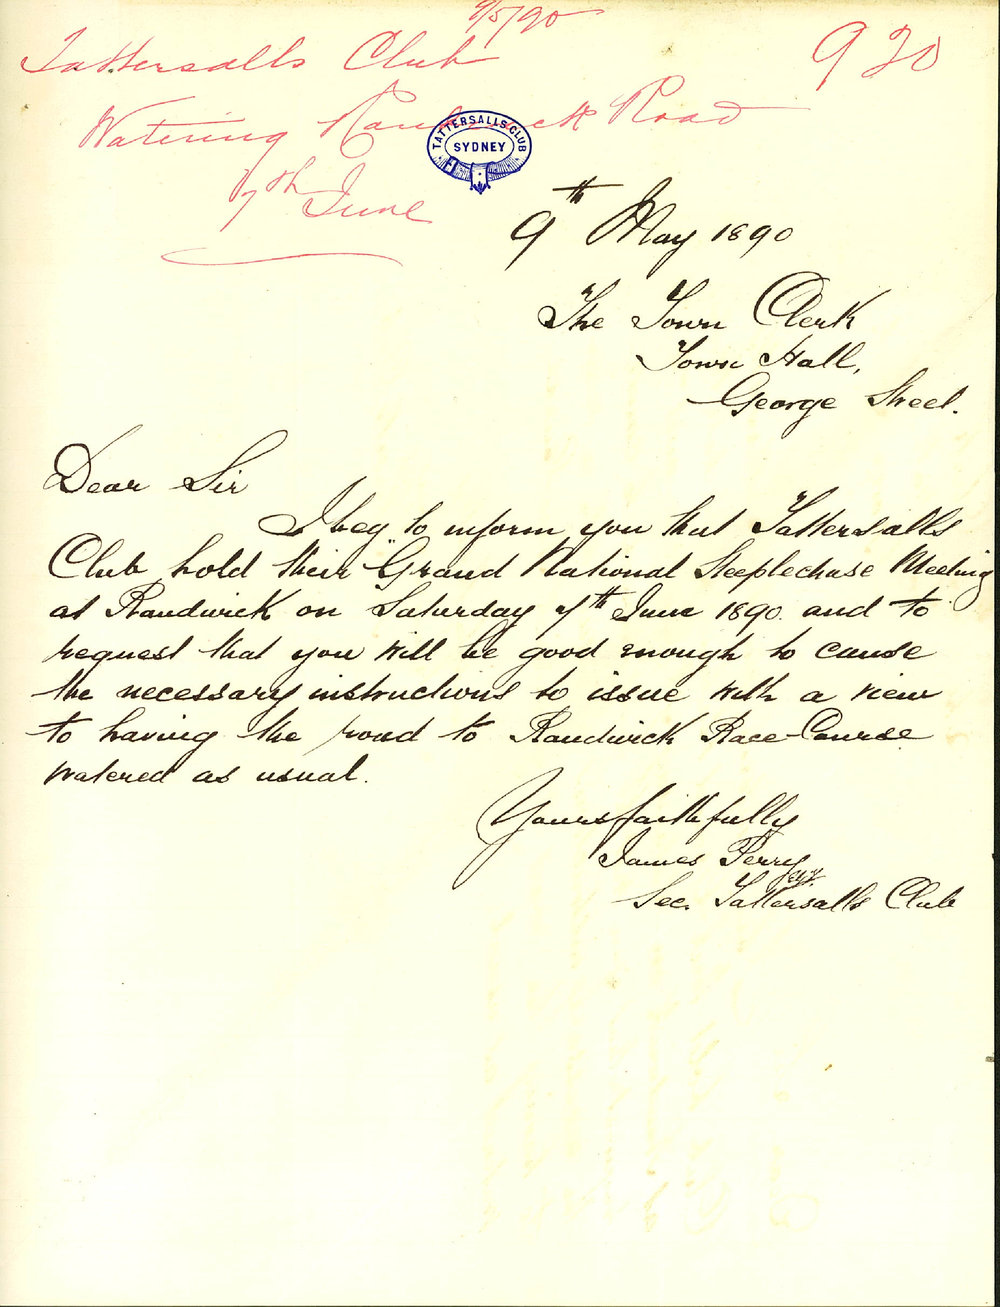 9/5/90
Tattersalls Club 920
Watering Randwick Road
7th June
TATTERSALLS CLUB
SYDNEY
9th May 1890
The Town Clerk
Town Hall,
George Street.
Dear Sir
I beg to inform you that Tattersalls
Club hold their "Grand National Steeplechase Meeting
at Randwick on Saturday 7th June 1890. and to
request that you will be good enough to cause
the necessary instructions to issue with a view
to having the road to Randwick Race-Course
watered as usual.
Yours faithfully
James Perry
Sec. Tattersalls Club